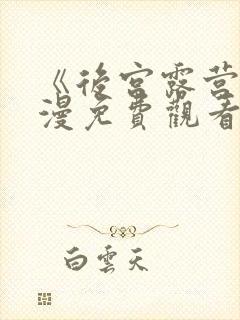 《後宮露营
漫免費觀看
白雲天